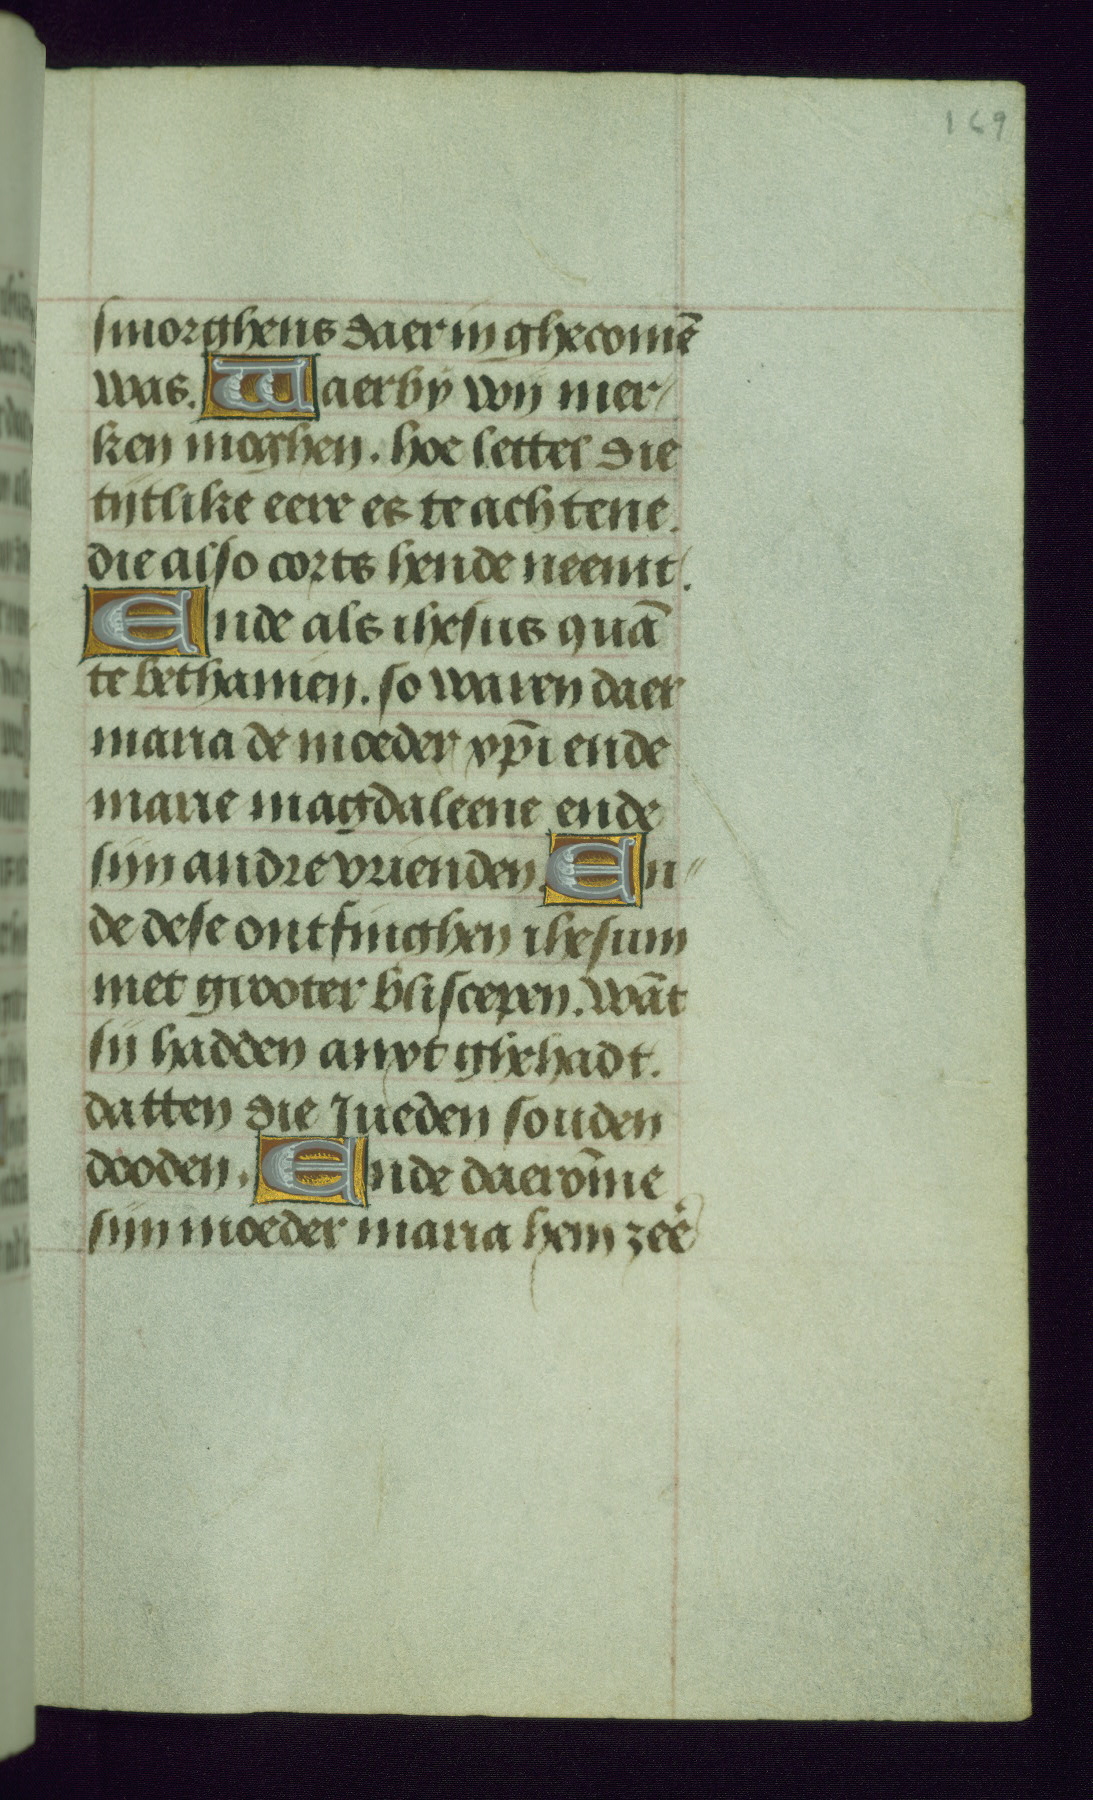 169
smorghens daer in ghecomē
was. Waer by wij mer/
ken moghen. hoe lettel die
tijtlike eere es te achtene.
die also corts hende neemt.
Ende als ihesus quā
te bethanien. so waren daer
maria de moeder xp̄i ende
marie magdaleene ende
sijn andre vrienden. En⸗
de dese ontfinghen ihesum
met grooter bliscepen. wāt
sij hadden anxt ghehadt.
datten die Jueden souden
dooden. Ende daerom̄e
sijn moeder maria hem zeer